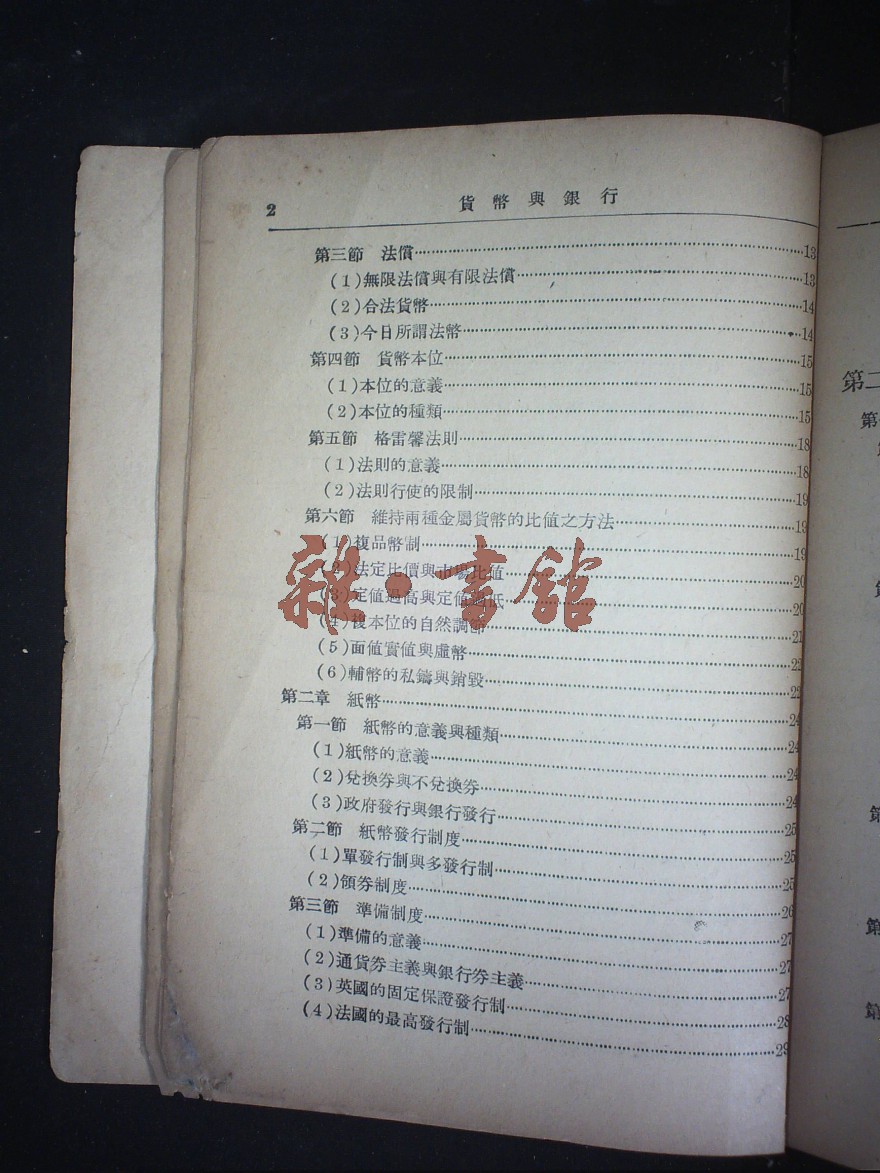 2 貨幣與銀行
第三節 法償……13
(1)無限法償與有限法償……13
(2)合法貨幣……14
(3)今日所謂法幣……14
第四節 貨幣本位……15
(1)本位的意義……15
(2)本位的種類……15
第五節 格雷馨法則……18
(1)法則的意義……18
(2)法則行使的限制……19
第六節 維持兩種金屬貨幣的比值之方法……19
(1)複品幣制……19
(2)法定比價與市場比值……20
(3)定值過高與定值過低……20
(4)複本位的自然調節……21
(5)面值實值與虛幣……22
(6)輔幣的私鑄與銷毀……22
第二章 紙幣……24
第一節 紙幣的意義與種類……24
(1)紙幣的意義……24
(2)兌換券與不兌換券……24
(3)政府發行與銀行發行……25
第二節 紙幣發行制度……25
(1)單發行制與多發行制……25
(2)領券制度……26
第三節 準備制度……27
(1)準備的意義……27
(2)通貨券主義與銀行券主義……27
(3)英國的固定保證發行制……28
(4)法國的最高發行制……29
雜·書館
第二
第
第
第
第
第